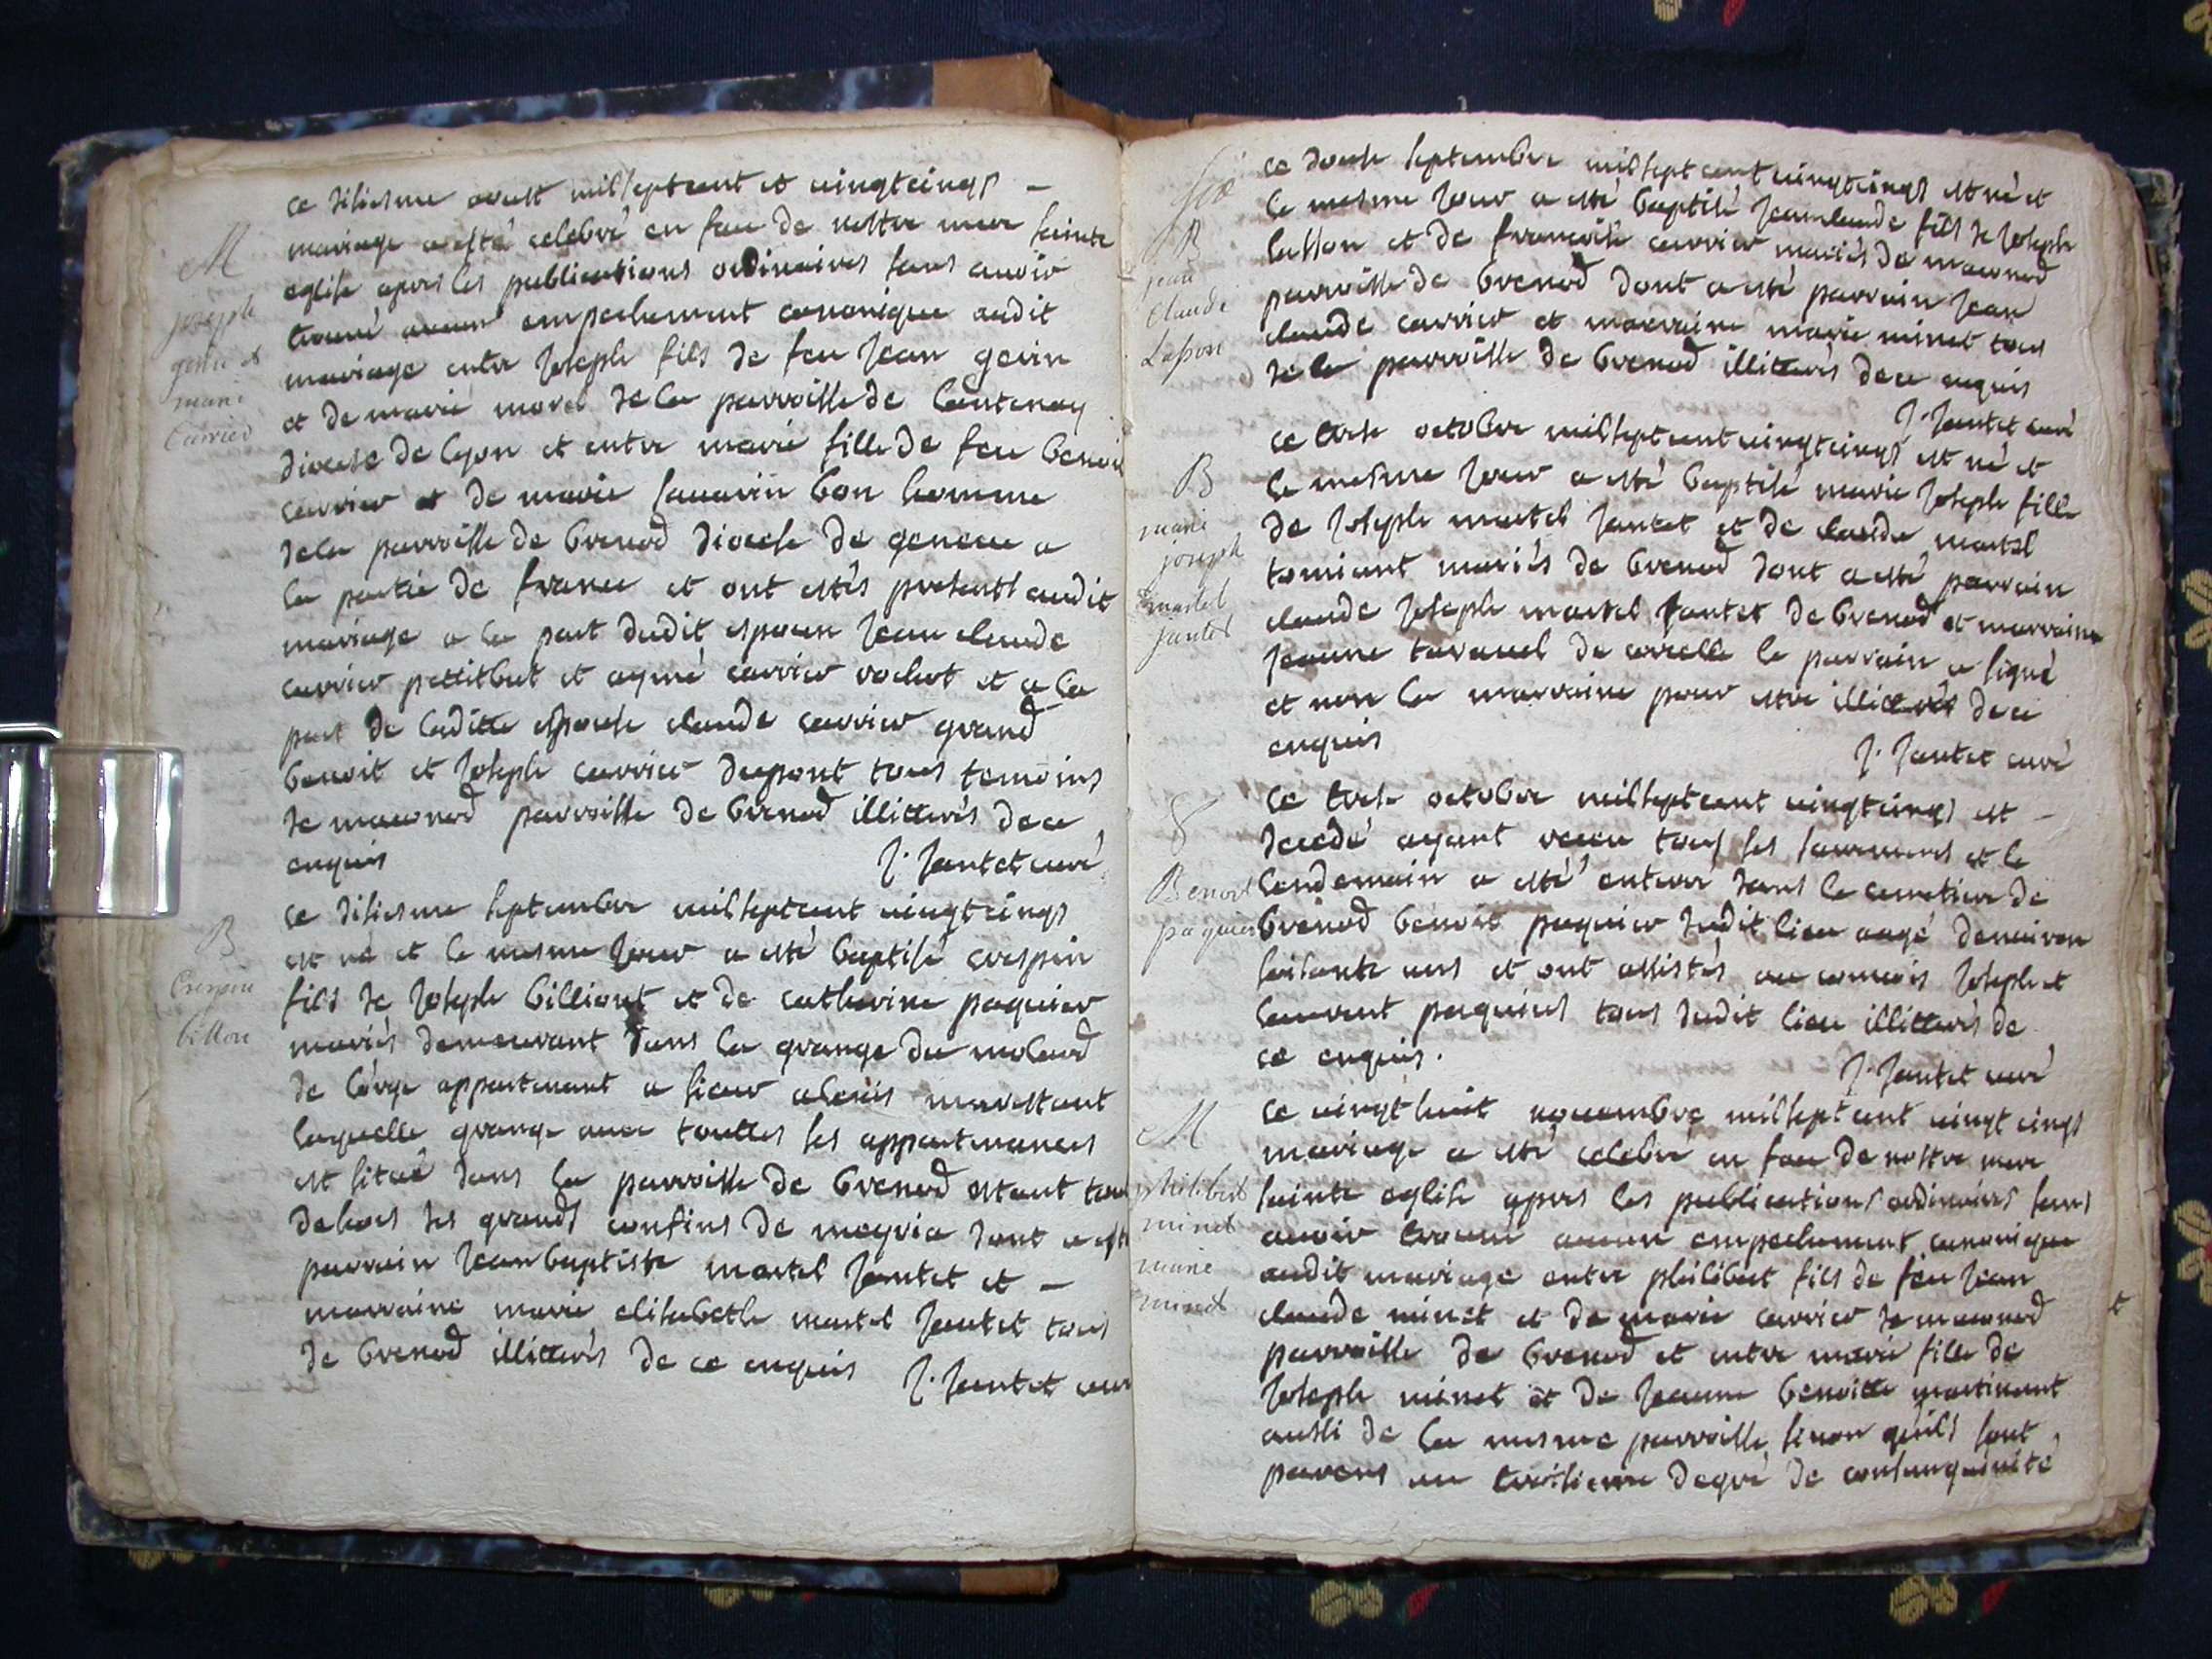 ce disiesme aoust milseptcent et vingtcinqs –
mariage a esté celebré en face de nostre mere sainte
eglise apres les publications ordinaires sans avoir
trouvé aucun empechement canonique audit
mariage entre Joseph fils de feu Jean gevin
et de marie morel de la parroisse de lantenay
diocese de lyon et entre marie fille de feu benoit
carrier et de marie sauarin bon homme
dela parroisse de brenod diocese de geneve a
la partie de france et ont estés presents audit
mariage a la part dudit espoux Jean claude
carrier pettitbut et aymé carrier rochet et a la
part de laditte espouse claude carrier grand
benoit et Joseph carrier dupont tous temoins
de macconod parroisse de brenod illitterés de ce
enquis J. Jantet curé
ce disiesme septembre milseptcent vingtcinqs
est né et le mesme Jour a esté baptisé crespin
fils de Joseph billiont et de catherine paquier
mariés demeurant dans la grange du molard
de lorge appartenant a sieur alexis marestant
laquelle grange avec touttes ses appartenances
est situé dans la parroisse de brenod estant tout
dehors des grands confins de meyria dont a esté
parrain Jean baptiste martel Jantet et –
marraine marie elisabeth martel Jantet tous
de brenod illitterés de ce enquis J. Jantet cur
M
joseph
gevin et
marie
Carrier
B
Crespin
billion
ce douse septembre milseptcent vingtcinqs est né et
le mesme Jour a esté baptisé Jeanclaude fils de Joseph
lasson et de francoise carrier mariés de macconod
parroisse de brenod dont a esté parrain Jean
claude carrier et marraine marie minet tous
de la parroisse de brenod illitterés de ce enquis
J. Jantet curé
ce trese octobre milseptcent vingtcinqs est né et
le mesme Jour a esté baptisé marie Joseph fille
de Joseph martel Jantet et de clauda martel
tomiant mariés de brenod dont a esté parrain
claude Joseph martel Jantet de brenod et marraine
Jeanne tavanel de corcelle le parrain a signé
et non la marraine pour estre illitterés de ce
enquis J. Jantet curé
ce trese octobre milseptcent vingtcinqs est –
decedé ayant receu tous ses sacremens et le
lendemain a esté enterré dans le cemetiere de
brenod benoit paquier dudit lieu aagé denviron
soisante ans et ont assistés au convois Joseph et
laurent paquiers tous dudit lieu illitterés de
ce enquis.
J. Jantet curé
ce vingt huit novembre milseptcent vingt cinqs
mariage a esté celebré en face de nostre mere
sainte eglise apres les publications ordinaires sans
avoir trouvé aucun empechement canonique
audit mariage entre philibert fils de feu Jean
claude minet et de marie carrier de macconod
parroisse de brenod et entre marie fille de
Joseph minet et de Jeanne benoitte martinant
aussi de la mesme parroisse, sinon quils sont
parens au troisieme degré de consanguinité
B
jean
claude
Lasson
B
marie
joseph
martel
jantet
Benoit
paquier
M
philibert
minet
marie
minet